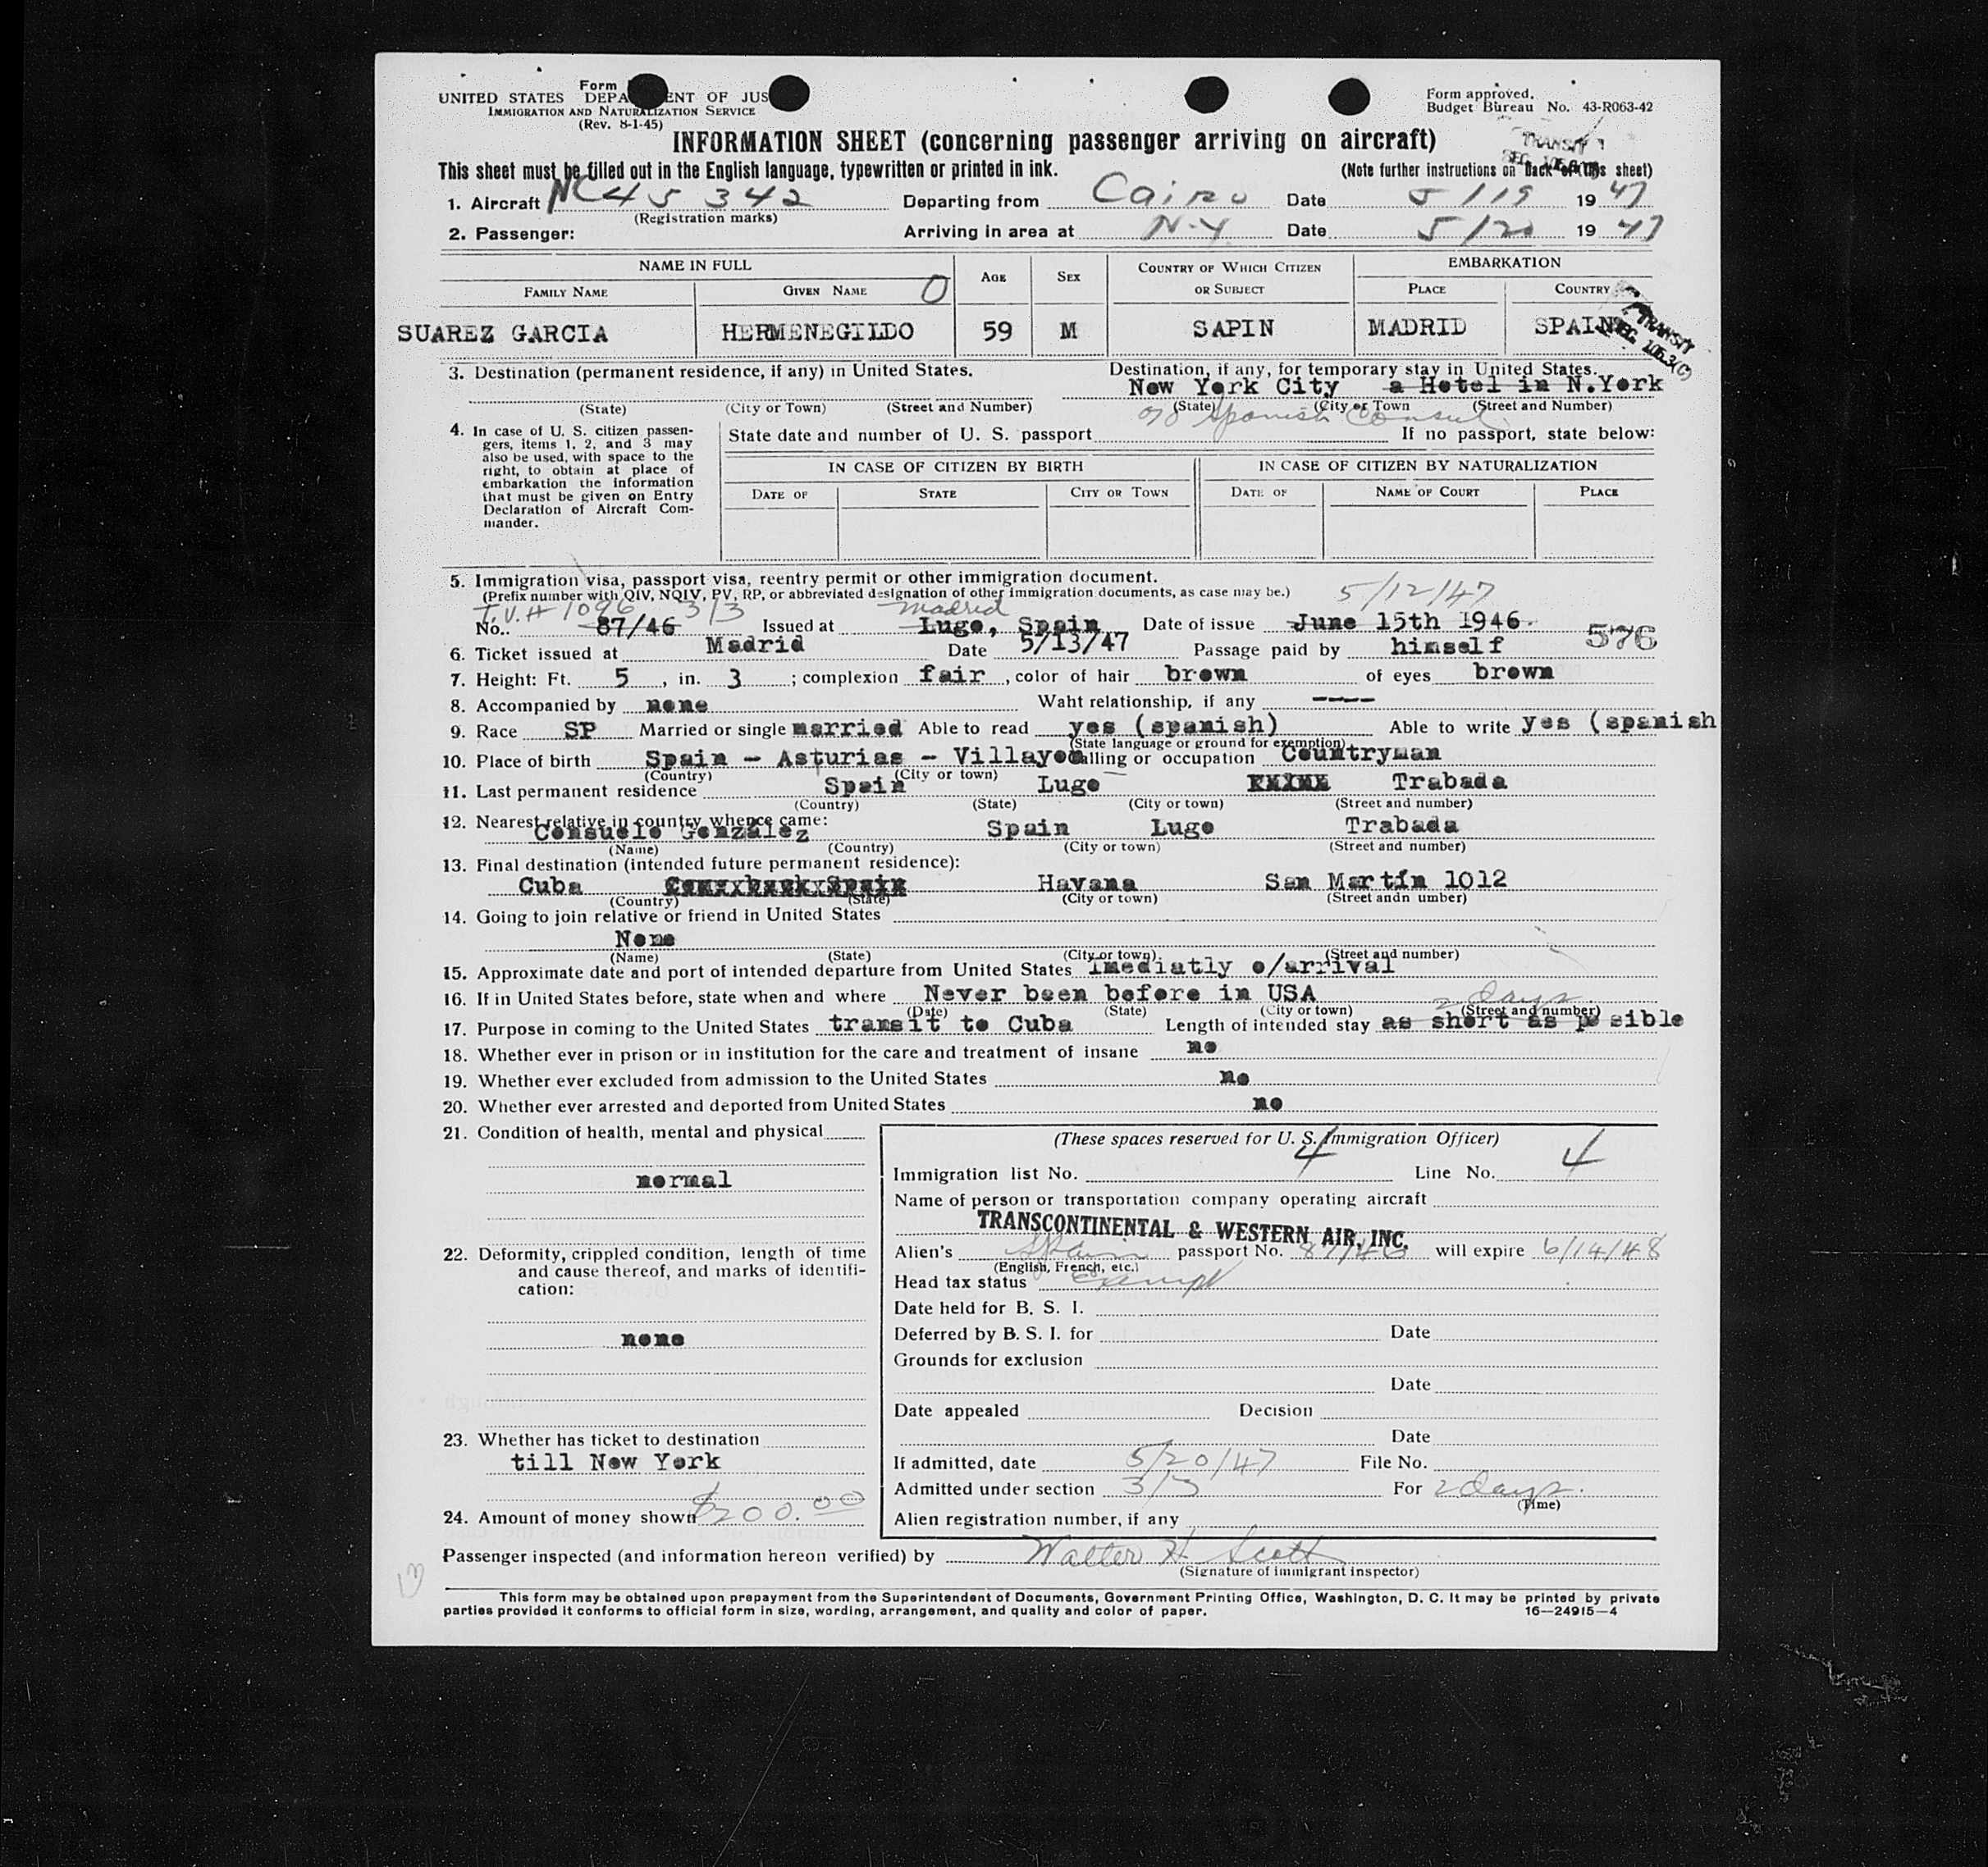 Form
UNITED STATES DEPA ENT OF JUS
IMMIGRATION AND NATURALIZATION SERVICE
(Rev. 8-1-45)
Form approved.
Budget Bureau No. 43-R063-42
INFORMATION SHEET (concerning passenger arriving on aircraft)
TRANSIT
This sheet must be filled out in the English language, typewritten or printed in ink. (Note further instructions on back of this sheet)
1. Aircraft NC 45 342 Departing from Cairo Date 5/19 1947
(Registration marks)
2. Passenger: Arriving in area at N.Y Date 5/20 1947
NAME IN FULL AGE SEX COUNTRY OF WHICH CITIZEN OR SUBJECT EMBARKATION
FAMILY NAME GIVEN NAME O PLACE COUNTRY
SUAREZ GARCIA HERMENEGILDO 59 M SAPIN MADRID SPAIN
TRANSIT
SEC. 106.3(C)
3. Destination (permanent residence, if any) in United States. Destination, if any, for temporary stay in United States.
New York City a Hotel in N.York
(State) (City or Town) (Street and Number) (State) (City or Town (Street and Number)
% Spanish Consul
4. In case of U. S. citizen passen-
gers, items 1, 2, and 3 may
also be used, with space to the
right, to obtain at place of
embarkation the information
that must be given on Entry
Declaration of Aircraft Com-
mander.
State date and number of U. S. passport If no passport, state below:
IN CASE OF CITIZEN BY BIRTH IN CASE OF CITIZEN BY NATURALIZATION
DATE OF STATE CITY OR TOWN DATE OF NAME OF COURT PLACE
5. Immigration visa, passport visa, reentry permit or other immigration document.
(Prefix number with QIV, NQIV, PV, RP, or abbreviated designation of other immigration documents, as case may be.)
T.V.# 1096 3/3 Madrid 5/12/47
No.. 87/46 Issued at Lugo, Spain Date of issue June 15th 1946.
576
6. Ticket issued at Madrid Date 5/13/47 Passage paid by himself
7. Height: Ft. 5, in. 3; complexion fair, color of hair brown of eyes brown
8. Accompanied by none Waht relationship, if any ----
9. Race SP Married or single married Able to read yes (spanish) Able to write yes (spanish
(State language or ground for exemption)
10. Place of birth Spain - Asturias - Villayon Calling or occupation Countryman
(Country) (City or town)
11. Last permanent residence Spain Lugo Trabada
(Country) (State) (City or town) (Street and number)
12. Nearest relative in country whence came:
Consuelo Gonzalez Spain Lugo Trabada
(Name) (Country) (City or town) (Street and number)
13. Final destination (intended future permanent residence):
Cuba Havana San Martín 1012
(Country) (State) (City or town) (Street andn umber)
14. Going to join relative or friend in United States
None
(Name) (State) (City or town) (Street and number)
15. Approximate date and port of intended departure from United States Imediatly o/arrival
16. If in United States before, state when and where Never been before in USA
(Date) (State) (City or town) (Street and number)
2 days
17. Purpose in coming to the United States transit to Cuba Length of intended stay as short as posible
18. Whether ever in prison or in institution for the care and treatment of insane no
19. Whether ever excluded from admission to the United States no
20. Whether ever arrested and deported from United States no
21. Condition of health, mental and physical
normal
22. Deformity, crippled condition, length of time
and cause thereof, and marks of identifi-
cation:
none
23. Whether has ticket to destination
till New York
24. Amount of money shown $200.00
(These spaces reserved for U. S. Immigration Officer)
Immigration list No. 4 Line No. 4
Name of person or transportation company operating aircraft
TRANSCONTINENTAL & WESTERN AIR, INC.
Alien's Spain passport No. 87/46 will expire 6/14/48
(English, French, etc.)
Head tax status Exempt
Date held for B. S. I.
Deferred by B. S. I. for Date
Grounds for exclusion
Date
Date appealed Decision
Date
If admitted, date 5/20/47 File No.
Admitted under section 3/3 For 2 days.
(Time)
Alien registration number, if any
Passenger inspected (and information hereon verified) by Walter H. Scott
(Signature of immigrant inspector)
This form may be obtained upon prepayment from the Superintendent of Documents, Government Printing Office, Washington, D. C. It may be printed by private
parties provided it conforms to official form in size, wording, arrangement, and quality and color of paper. 16—24915-4